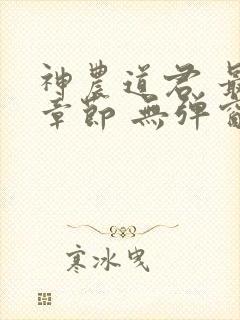 神農道君 最
章節 無彈窗
寒冰曳